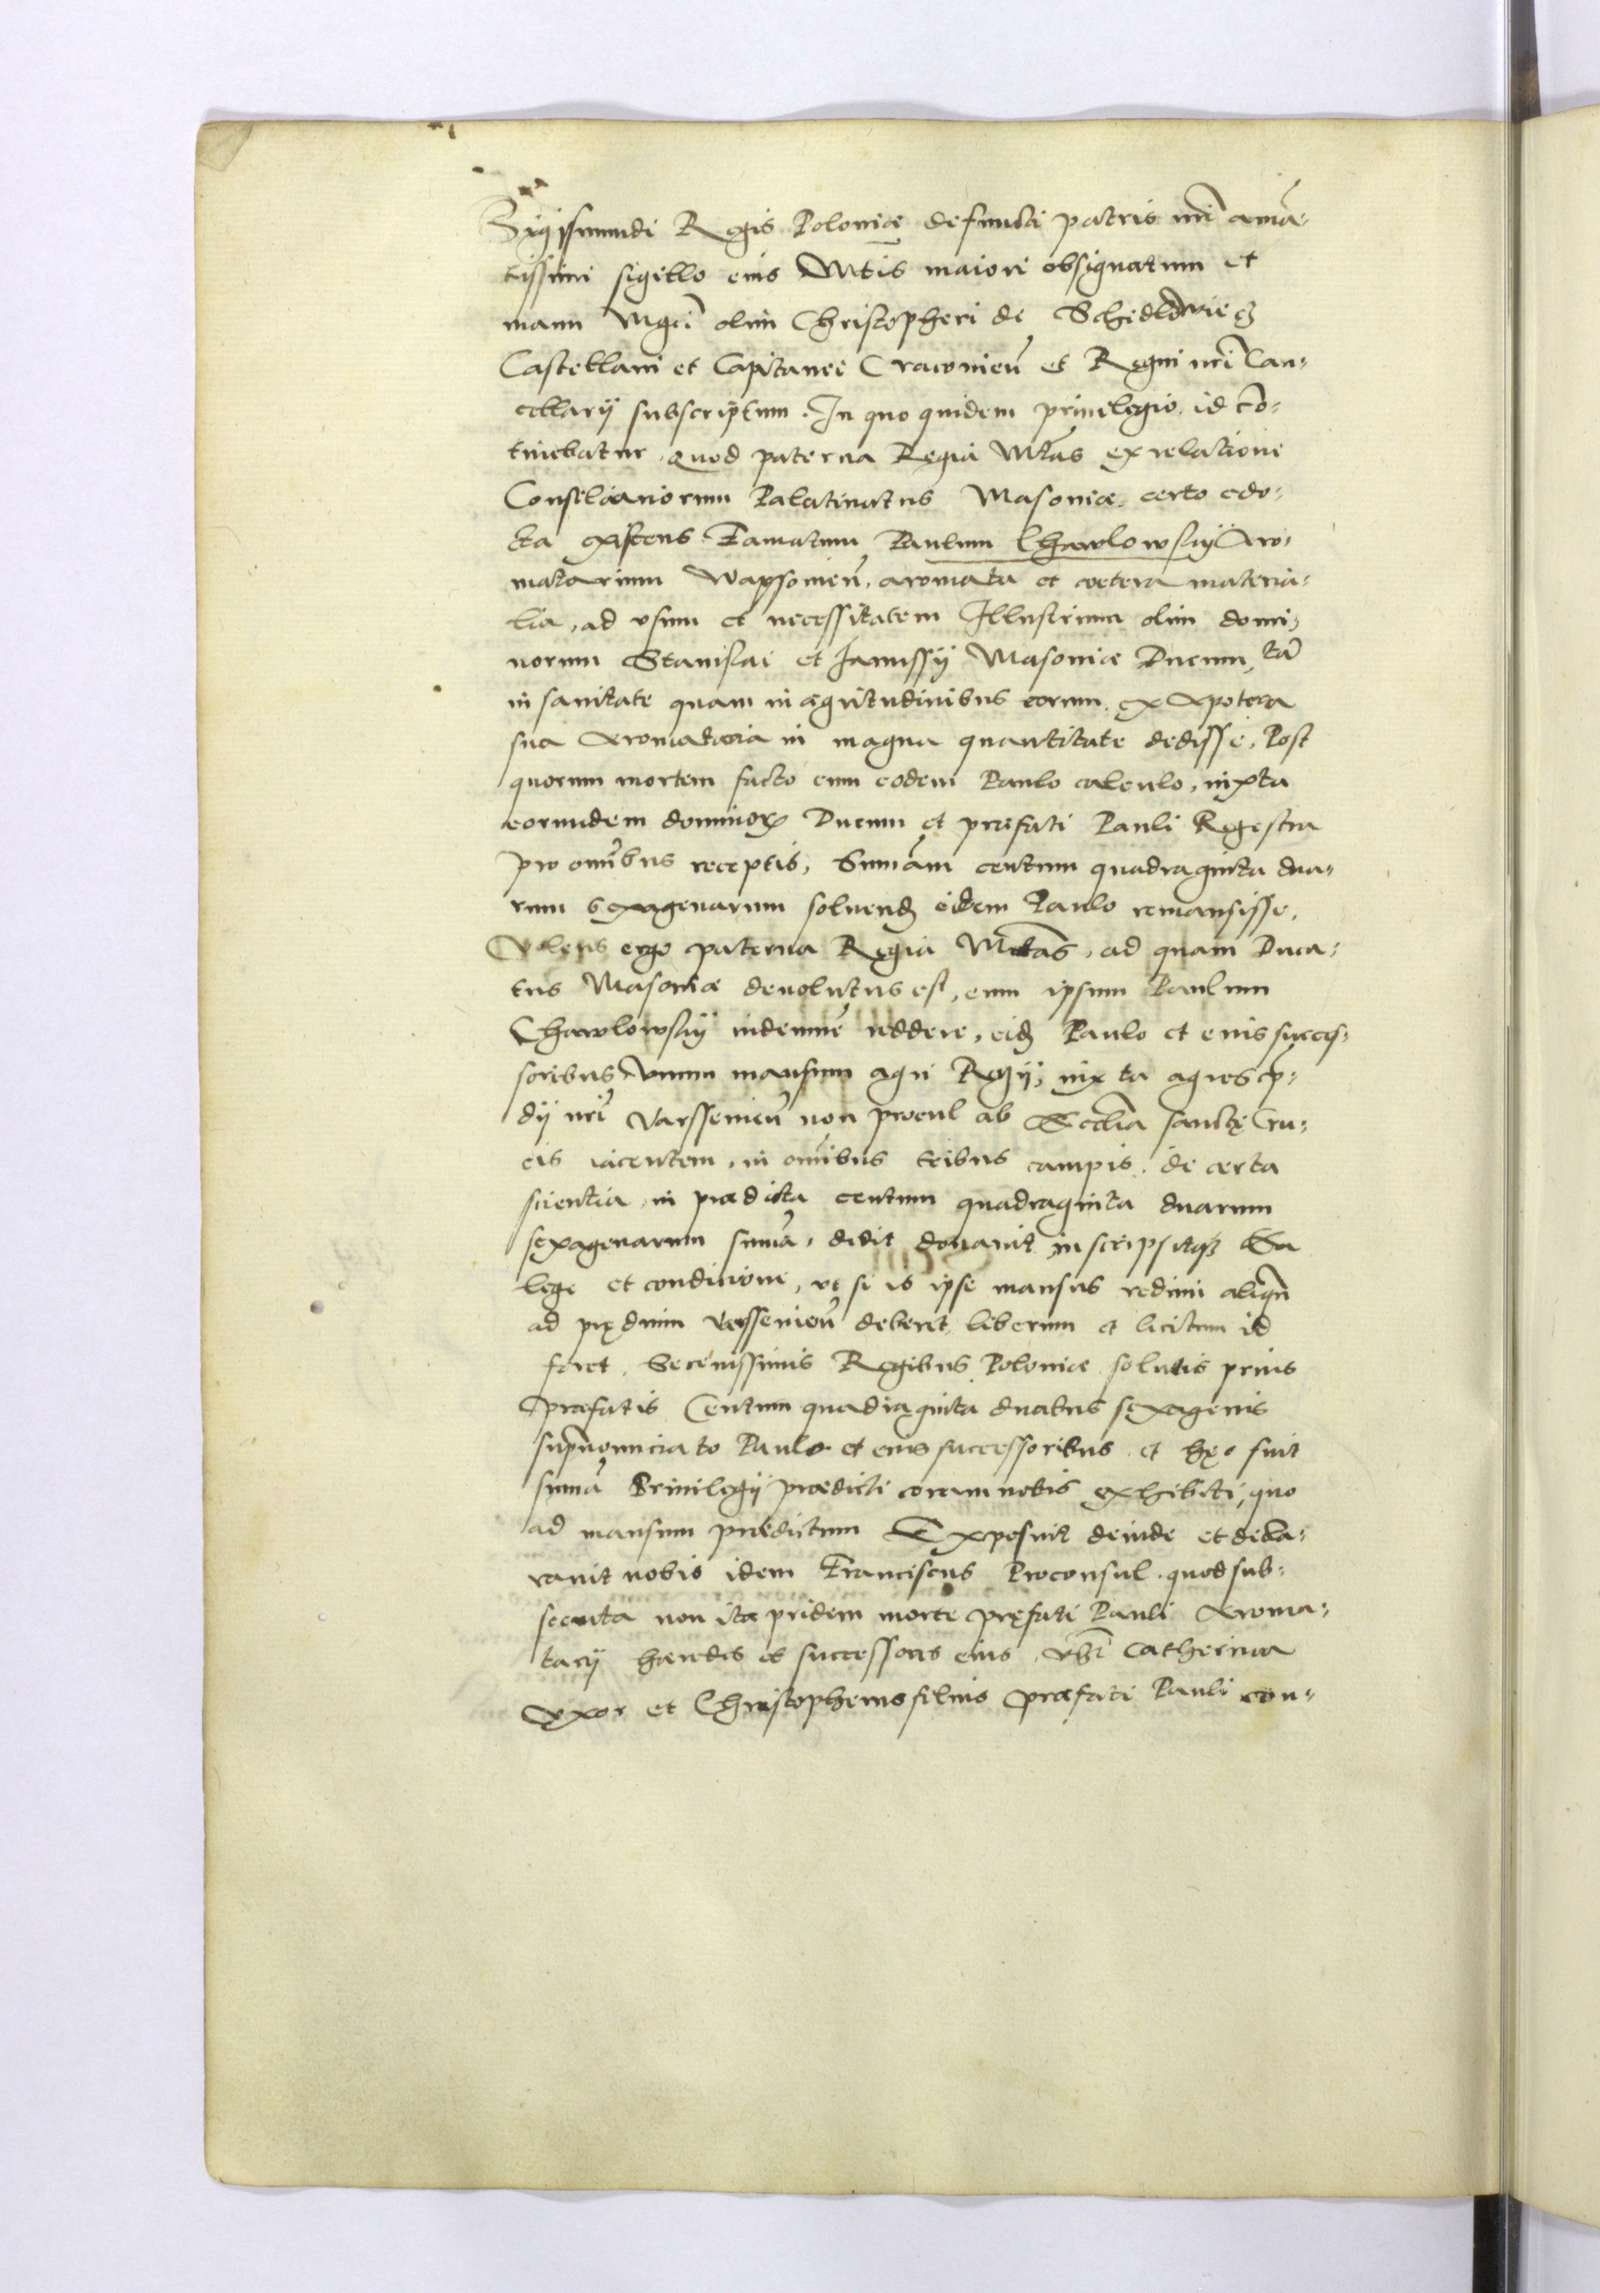 Sigissmundi Regis Poloniæ defuncti patris nrī amā-
tissimi sigillo eius Mtis maiori obsignatum et
manu Mgci olim Christopheri de Schidlowiecz
Castellani et Capitanei Cracovieñ et Regni nrī Can-
cellarij subscriptum. In quo quidem privilegio id cō-
tinebatur, quod paterna Regia Mtas ex relatione
Consiliariorum Palatinatus Masoviæ certo edo-
cta existens Famatum Paulum Chawlowskÿ Aro-
matarium Warsovieñ, aromata et cœtera materia-
lia, ad usum et necessitatem Illustrium olim domi-
norum Stanislai et Janussÿ Masoviæ Ducum, tā
in sanitate quam in ægritudinibus eorum, ex Apoteca
sua Aromataria in magna quantitate dedisse, Post
quorum mortem facto cum eodem Paulo calculo, iuxta
eorundem dominorum Ducum et præfati Pauli Regestra
pro omībus receptis, Summām centum quadraginta dua-
rum sexagenarum solvend eidem Paulo remansisse,
Volens ergo paterna Regia Mtas, ad quam Duca-
tus Masoviæ devolutus est, eum ipsum Paulum
Chawlowskÿ indemnē reddere, eid Paulo et eius succes-
soribus unum mansum agri Regij, iuxta agros p̄-
dij nrī Varssevieñ non procul ab Ecclīa sanctę Cru-
cis iacentem, in omībus tribus campis, de certa
scientia, in prædicta centum quadraginta duarum
sexagenarum summa, dedit donavit inscripsitq Ea
lege et conditione, ut si is ipse mansus redimi aliqñ
ad prędium Varssevieñ deberet, liberum et licitum id
foret Serenissimis Regibus Poloniæ solutis prius
præfatis Centum quadraginta duabus sexagenis
supnominato Paulo et eius successoribus, et hęc fuit
summa Privilegij prædicti coram nobis exhibiti, quo
ad mansum prædictum Exposuit deinde et decla-
ravit nobis idem Franciscus Proconsul, quod sub-
secuta non ita pridem morte pręfati Pauli Aroma-
tarij hæredes et successores eius, vbr Catherina
Uxor et Christopherus filius præfati Pauli con-